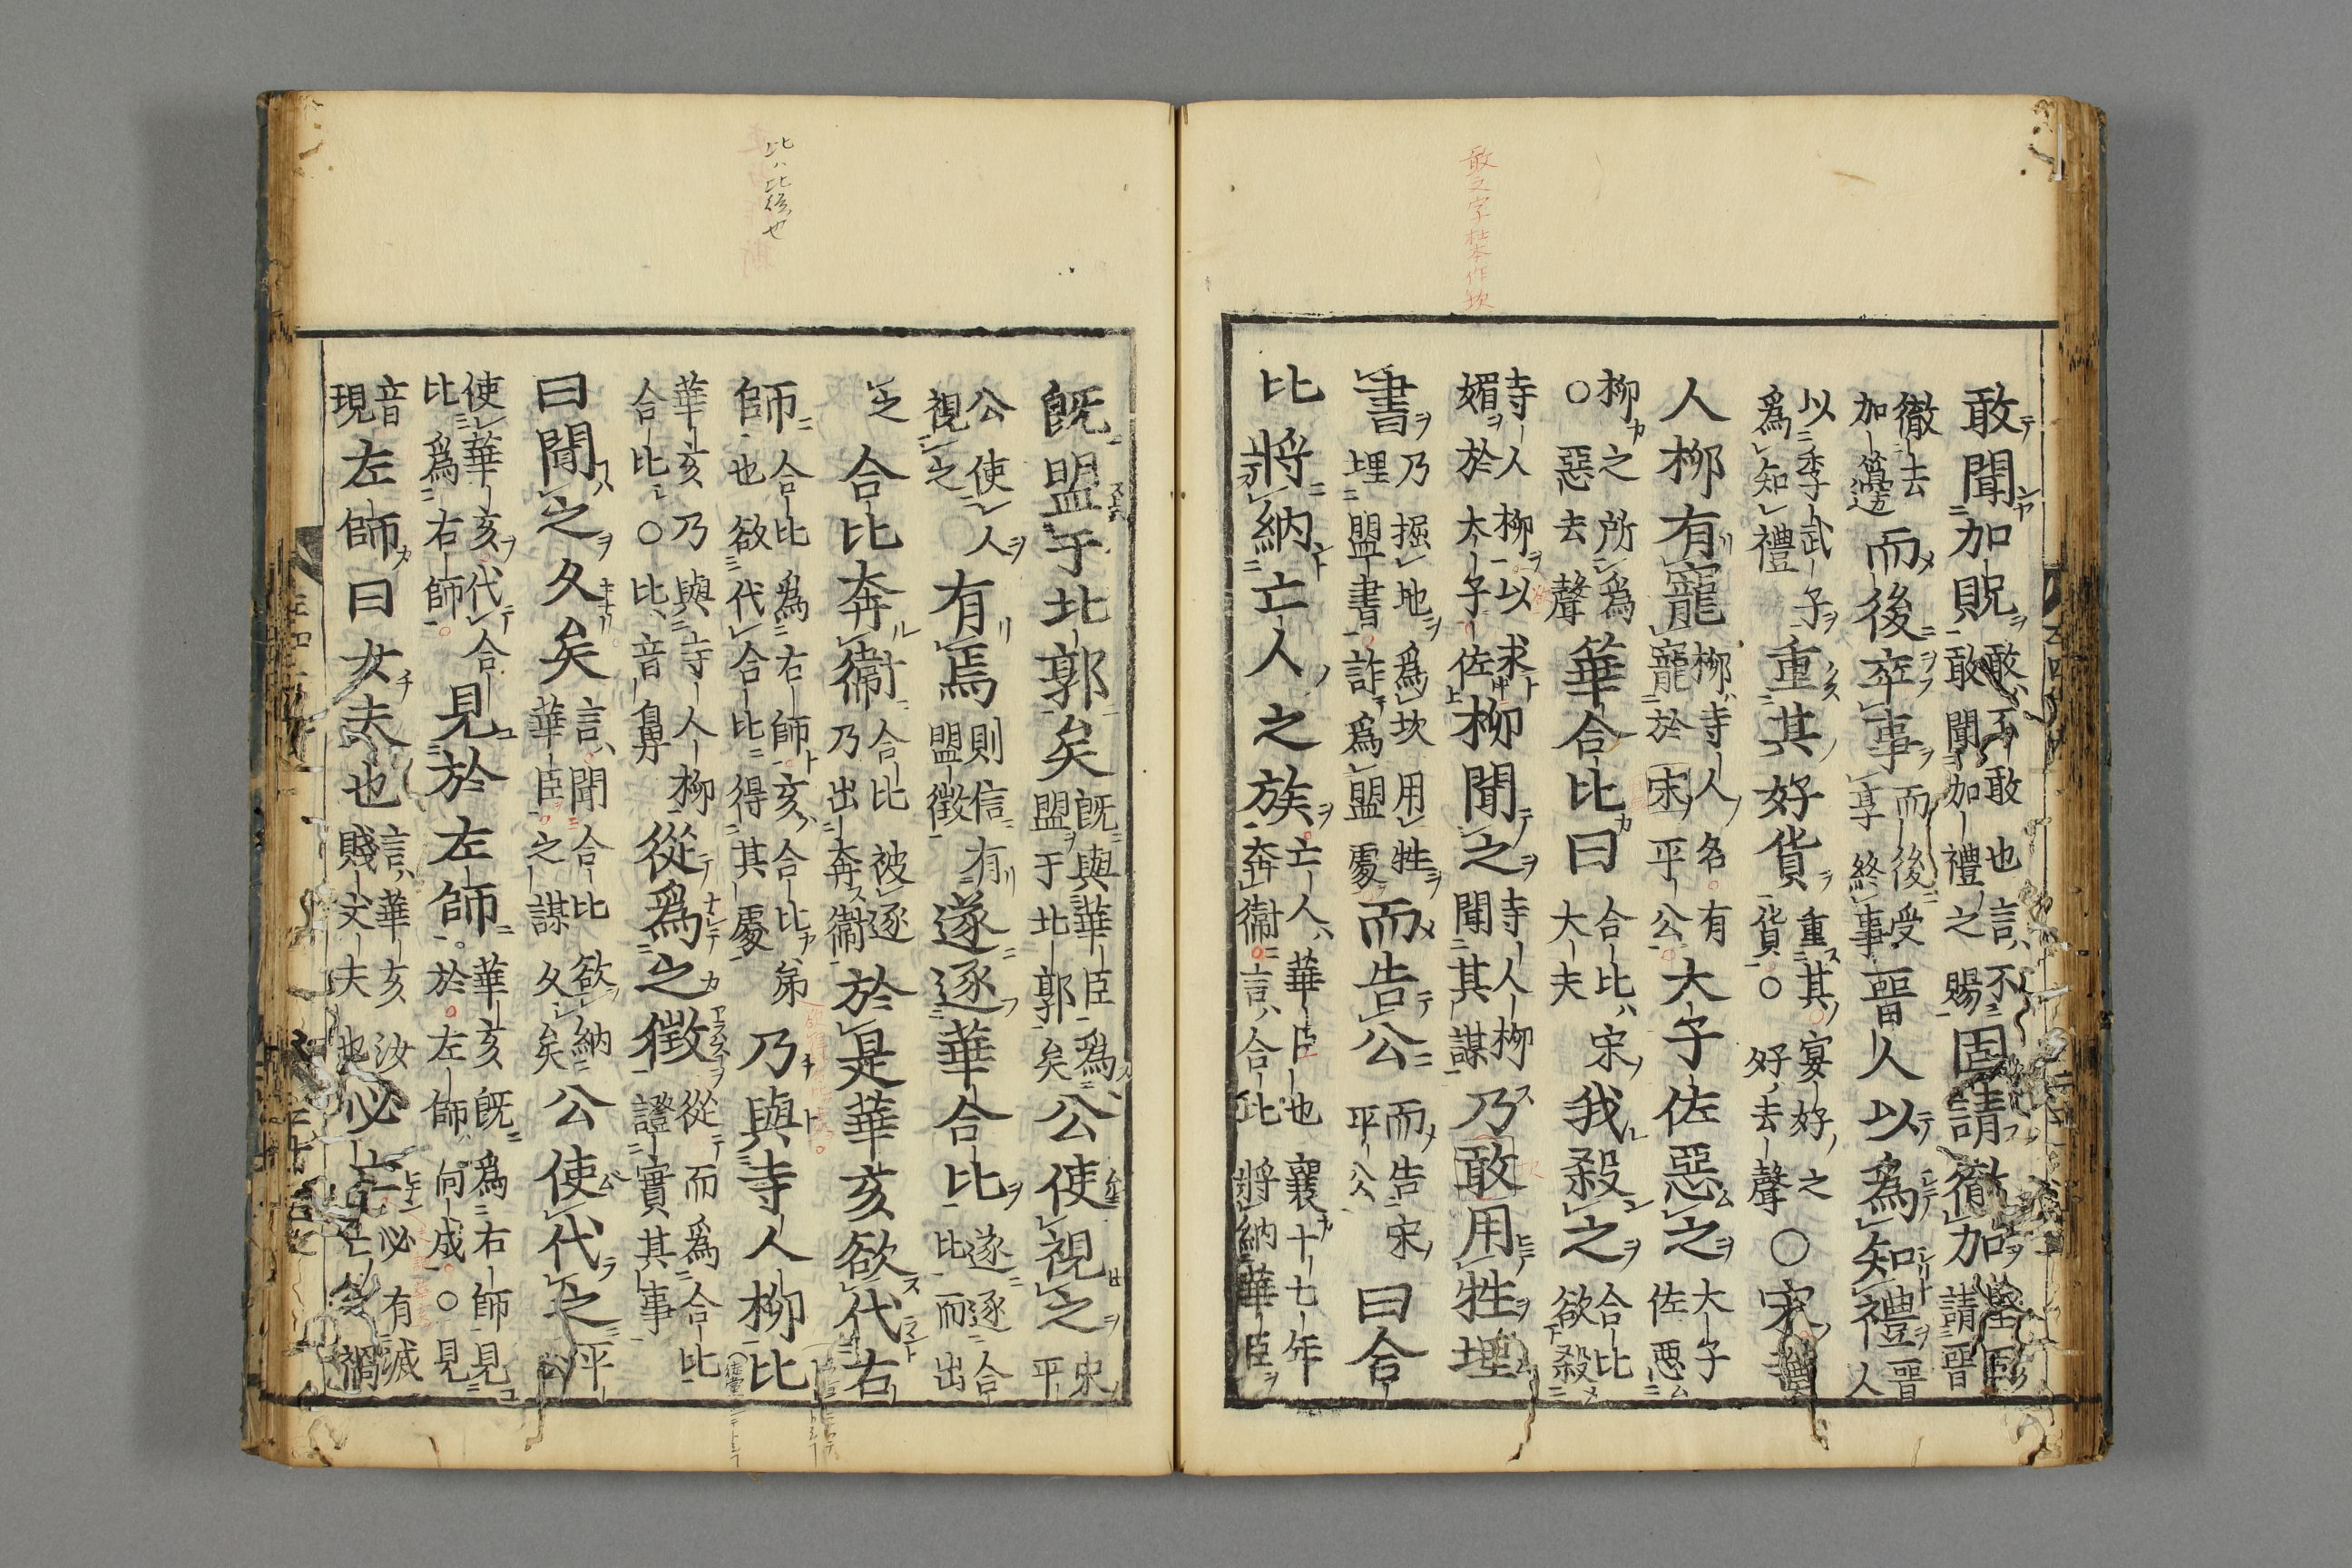 敢聞加貺敢不敢也言不敢聞加禮之賜固請徹加堅固請晋
徹去加籩而後卒事而後受享終事晋人以爲知禮晋人
以季武子爲知禮重其好貨重其宴好之貨○好去聲○宋寺
人柳有寵柳寺人名有寵於宋平公大子佐惡之大子佐惡
柳之所爲○惡去聲華合比曰合比宋大夫我殺之合比欲殺
寺人柳以求媚於大子佐柳聞之寺人柳聞其謀乃敢用牲埋
書乃掘地爲坎用牲埋盟書詐爲盟處而告公而告宋平公曰合
比將納亡人之族亡人華臣也襄十七年奔衞言合比將納華臣
既盟于北郭矣既與華臣爲盟于北郭矣公使視之宋平
公使人視之有焉則信有盟徵遂逐華合比遂逐合比而出
之合比奔衞合比被逐乃出奔衞於是華亥欲代右
師合比爲右師亥合比弟也欲代合比得其處乃與寺人柳比
華亥乃與寺人柳合比○比音鼻從爲之徵從而爲合比證實其事
曰聞之久矣言聞合比欲納華臣之謀久矣公使代之平公
使華亥代合比爲右師見於左師華亥既爲右師見於左師向戌○見
音現左師曰女夫也言華亥汝賤丈夫也必亡必有滅亡之禍
敢之字杜本作坎
比ハ比後也